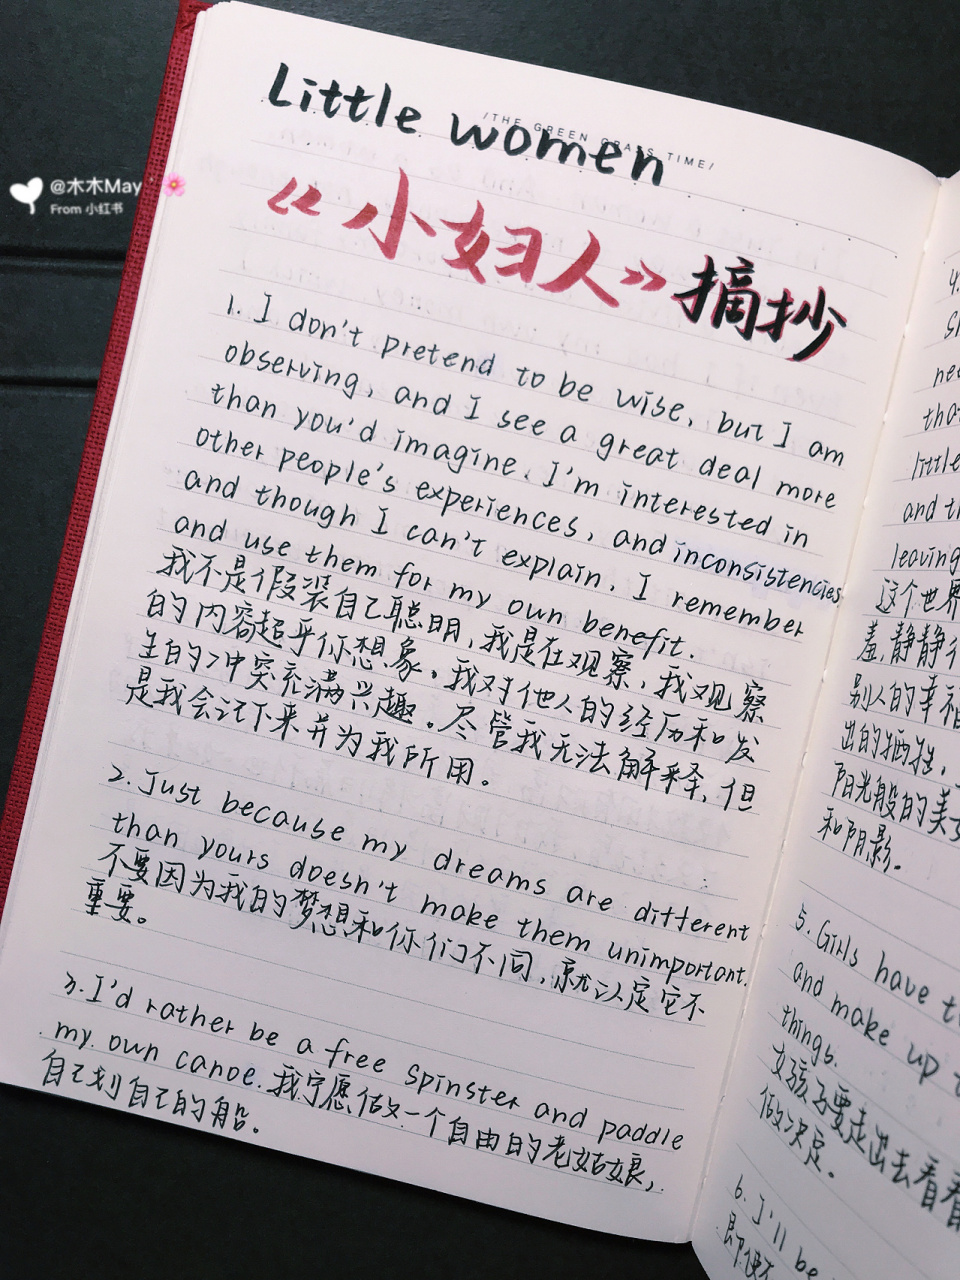 Little women
/THE GREEN GRASS TIME/
《小妇人》摘抄
@木木May
From 小红书
1. I don't pretend to be wise, but I am
observing, and I see a great deal more
than you'd imagine. I'm interested in
other people's experiences, and inconsistencies
and though I can't explain, I remember
and use them for my own benefit.
我不是假装自己聪明,我是在观察,我观察
的内容超乎你想象。我对他人的经历和发
生的冲突充满兴趣。尽管我无法解释,但
是我会记下来并为我所用。
2. Just because my dreams are different
than yours doesn't make them unimportant.
不要因为我的梦想和你们不同,就认定它不
重要。
3. I'd rather be a free spinster and paddle
my own canoe. 我宁愿做一个自由的老姑娘,
自己划自己的船。
4.
that
little
and th
leaving
这个世界
羞,静静
别人的幸福
出的牺牲,
阳光般的美
和阴影。
5. Girls have t
and make up t
things.
女孩子要走出去看看
做决定。
6. I'll be
即使